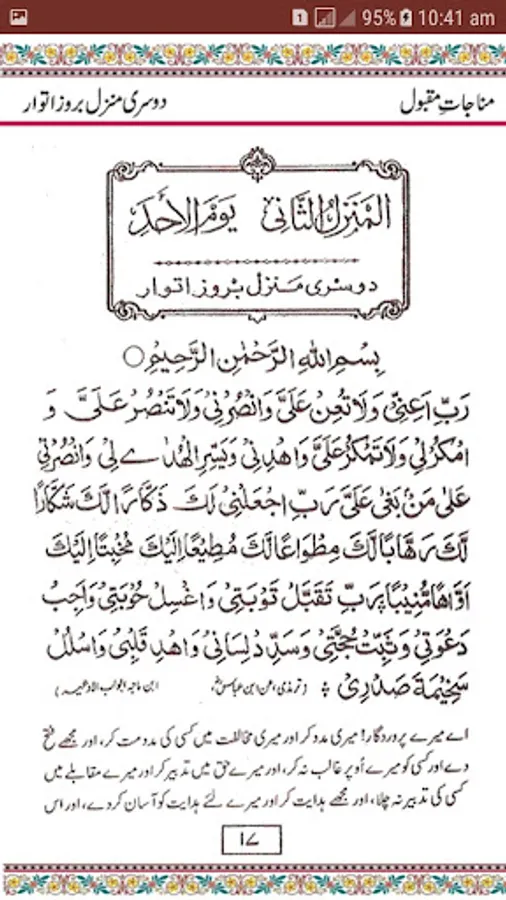 1 95% 10:41 am
مناجاتِ مقبول دوسری منزل بروز اتوار
اَلْمَنْزِلُ الثَّانِیْ یَوْمَ الْاَحَدِ
دوسری منزل بروز اتوار
بِسْمِ اللهِ الرَّحْمٰنِ الرَّحِیْمِ ○
رَبِّ اَعِنِّیْ وَلَا تُعِنْ عَلَیَّ وَانْصُرْنِیْ وَلَا تَنْصُرْ عَلَیَّ وَ
امْكُرْلِیْ وَلَا تَمْكُرْ عَلَیَّ وَاهْدِنِیْ وَیَسِّرِ الْهُدٰے لِیْ وَانْصُرْنِیْ
عَلٰی مَنْ بَغٰی عَلَیَّ رَبِّ اجْعَلْنِیْ لَكَ ذَكَّارًا لَّكَ شَكَّارًا
لَّكَ رَهَّابًا لَّكَ مِطْوَاعًا لَّكَ مُطِیْعًا اِلَیْكَ مُخْبِتًا اِلَیْكَ
اَوَّاهًا مُّنِیْبًا رَبِّ تَقَبَّلْ تَوْبَتِیْ وَاغْسِلْ حُوْبَتِیْ وَاَجِبْ
دَعْوَتِیْ وَثَبِّتْ حُجَّتِیْ وَسَدِّدْ لِسَانِیْ وَاهْدِ قَلْبِیْ وَاسْلُلْ
سَخِیْمَةَ صَدْرِیْ ؞ (ترمذی، عن ابن عباسؓ، ابن ماجه ابواب الادعیه)
اے میرے پروردگار! میری مدد کر اور میری مخالفت میں کسی کی مدد مت کر، اور مجھے فتح
دے اور کسی کو میرے اُوپر غالب نہ کر، اور میرے حق میں تدبیر کر اور میرے مقابلے میں
کسی کی تدبیر نہ چلا، اور مجھے ہدایت کر اور میرے لئے ہدایت کو آسان کردے، اور اس
۱۷